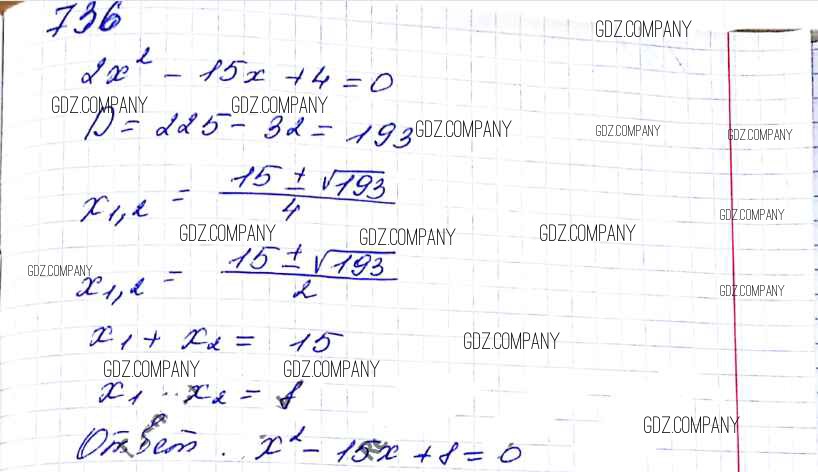 736
GDZ.COMPANY
2x² - 15x + 4 = 0
GDZ.COMPANY GDZ.COMPANY
D = 225 - 32 = 193
GDZ.COMPANY GDZ.COMPANY GDZ.COMPANY
x₁,₂ = (15 ± √193)/4
GDZ.COMPANY
GDZ.COMPANY GDZ.COMPANY GDZ.COMPANY
GDZ.COMPANY
x₁,₂ = (15 ± √193)/2
GDZ.COMPANY
x₁ + x₂ = 15
GDZ.COMPANY
GDZ.COMPANY GDZ.COMPANY
x₁ · x₂ = 8
GDZ.COMPANY
Ответ. x² - 15x + 8 = 0